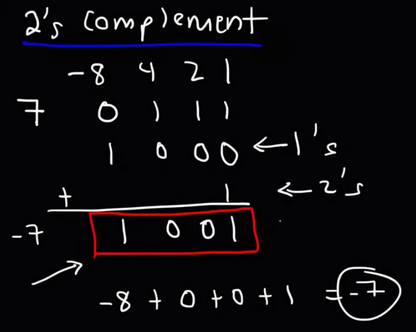 2's complement
-8 4 2 1
7 0 1 1 1
1 0 0 0 ← 1's
+ 1 ← 2's
-7 1 0 0 1
-8 + 0 + 0 + 1 = -7